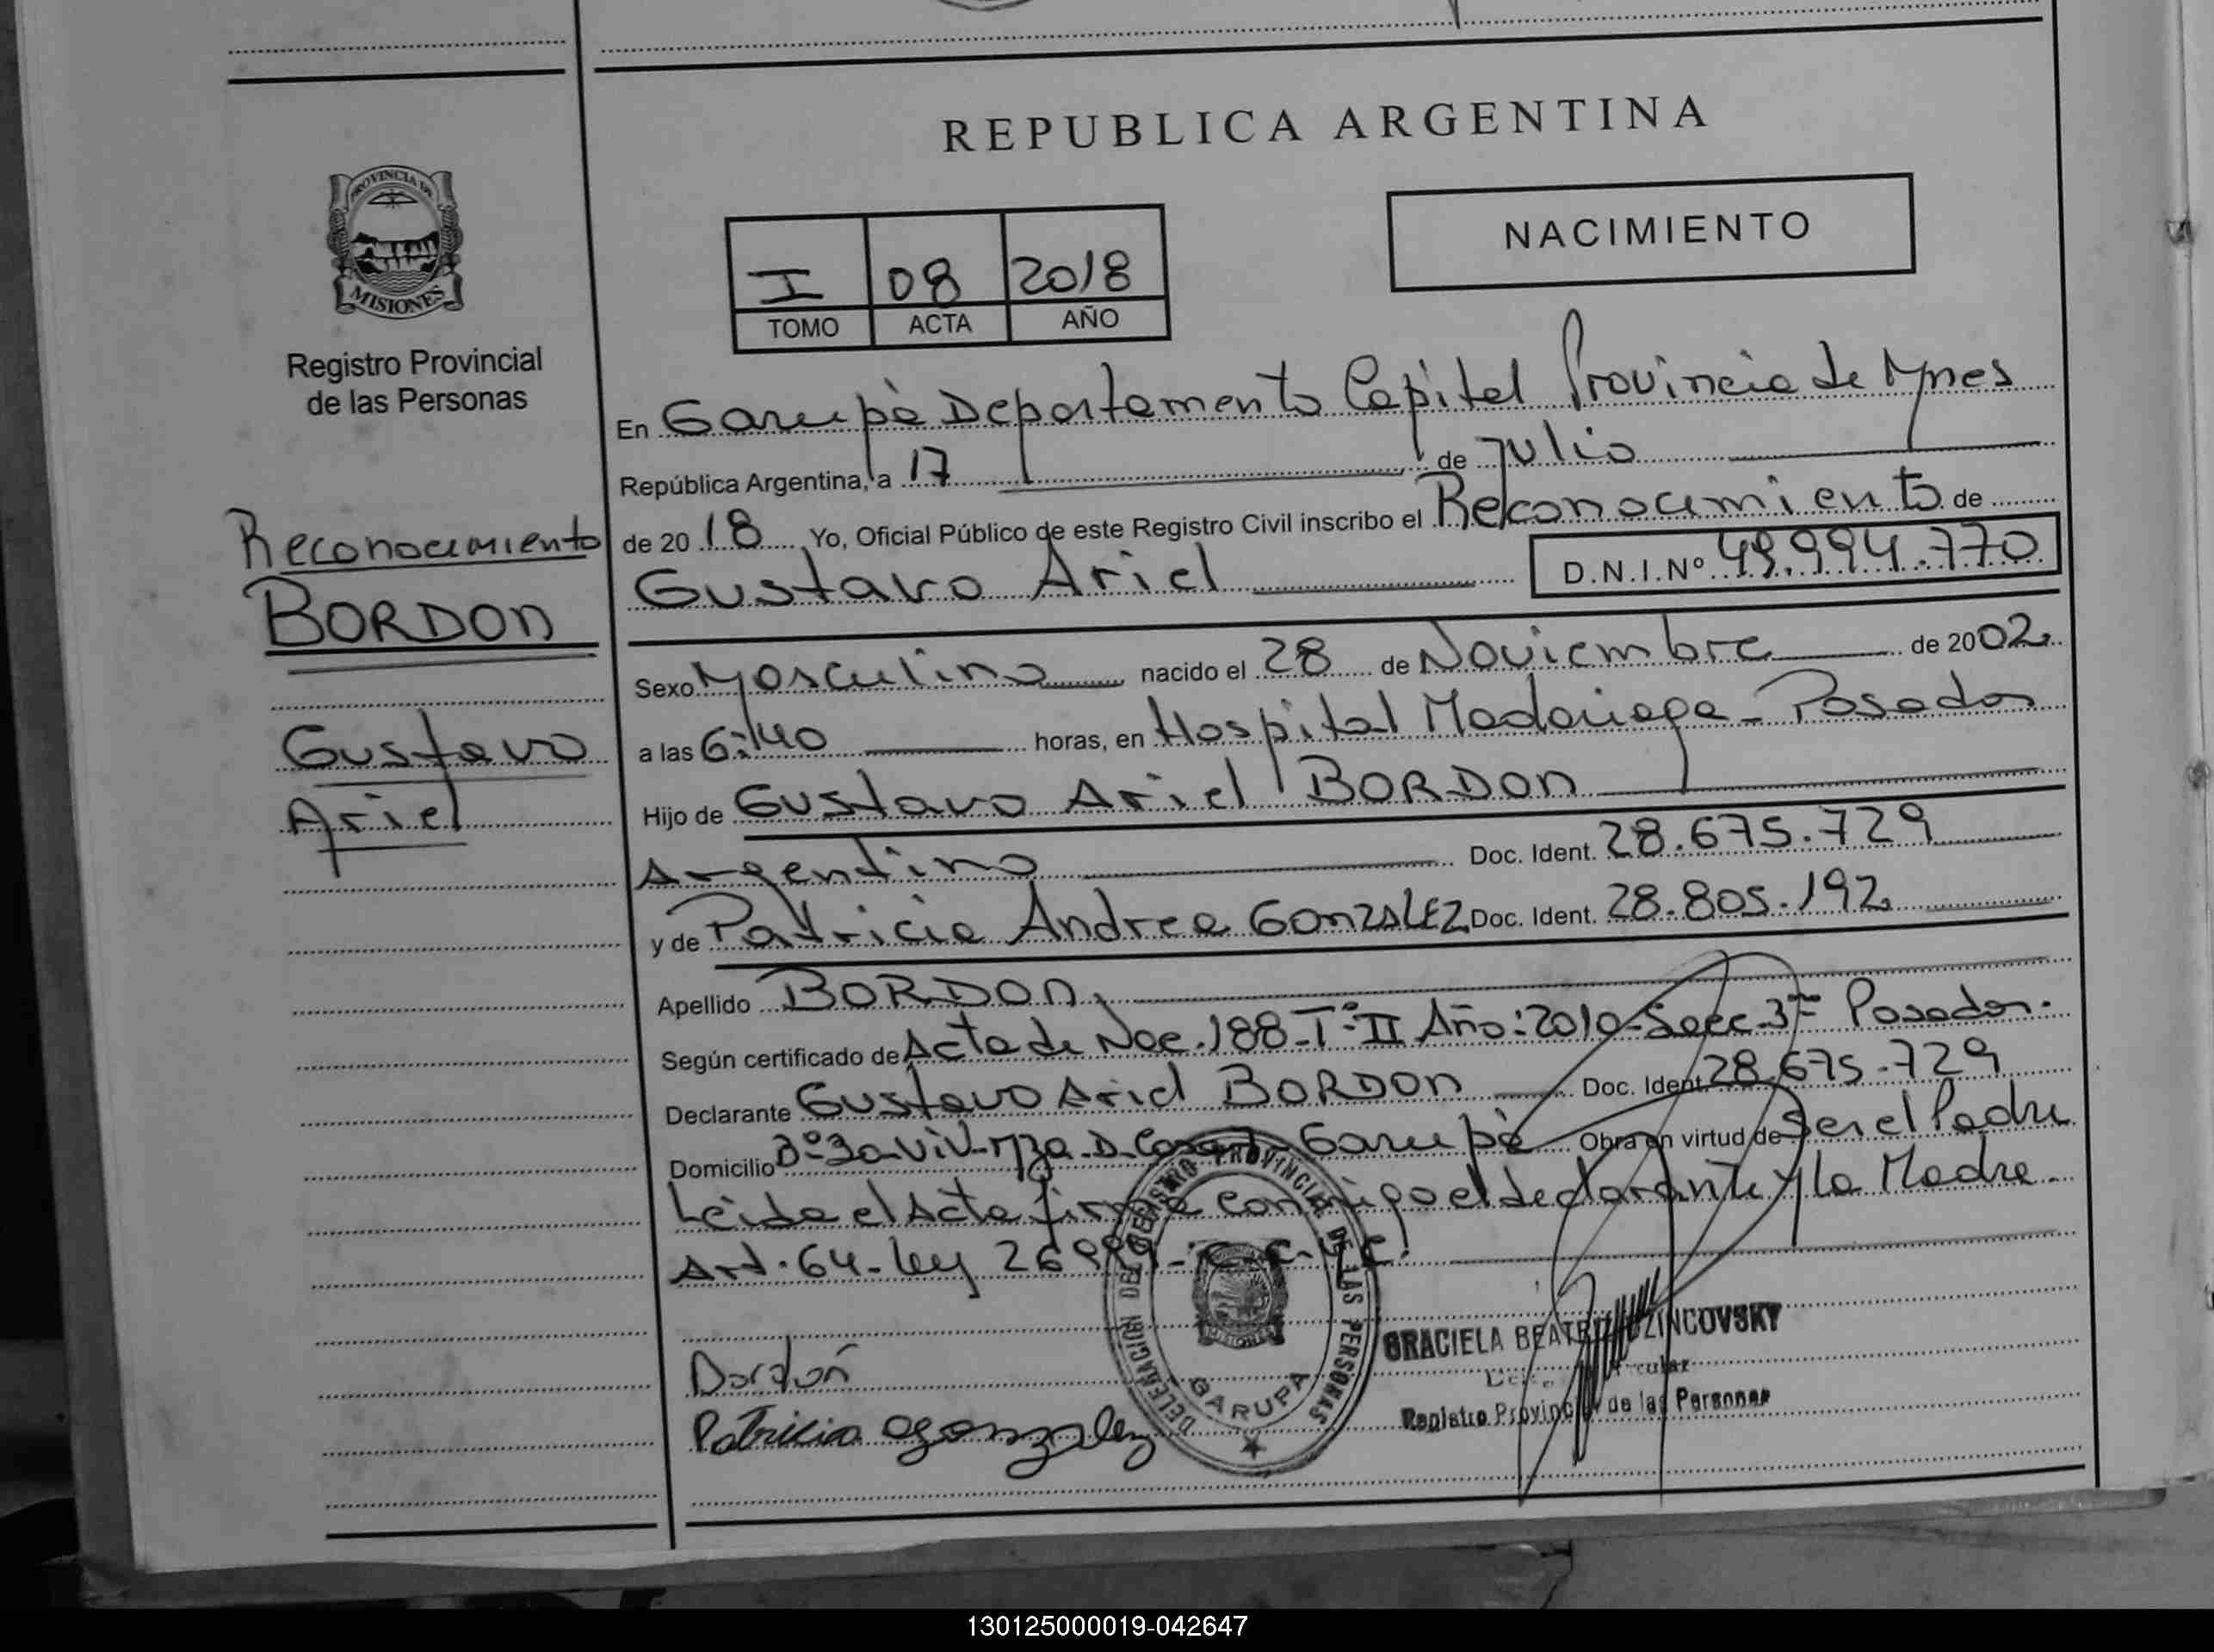 REPUBLICA ARGENTINA
NACIMIENTO
PROVINCIA DE
MISIONES
Registro Provincial
de las Personas
I 08 2018
TOMO ACTA AÑO
Reconocimiento
BORDON
Gustavo
Ariel
En Garupá Departamento Capital Provincia de Mnes
República Argentina, a 17 de Julio
de 20 18 Yo, Oficial Público de este Registro Civil inscribo el Reconocimiento de
Gustavo Ariel D.N.I.Nº 49.994.770
Sexo Masculino nacido el 28 de Noviembre de 20 02
a las 6:40 horas, en Hospital Madariaga - Posadas
Hijo de Gustavo Ariel BORDON
Argentino Doc. Ident. 28.675.729
y de Patricia Andrea GONZALEZ Doc. Ident. 28.805.192
Apellido BORDON
Según certificado de Acta de Nac. 188 - Tº II Año: 2010 - Secc. 3ra Posadas.
Declarante Gustavo Ariel BORDON Doc. Ident. 28.675.729
Domicilio Bº 30 Viv - Mza. D - Garupá Obra en virtud de Ser el Padre
Leida el Acta firma conmigo el declarante y la Madre.
Art. 64 - Ley 26994 - C.C.
DELEGACION DEL REGISTRO PROVINCIAL DE LAS PERSONAS
GARUPA
Bordón
Patricia gonzalez
GRACIELA
Registro Provincial de las Personas
130125000019-042647